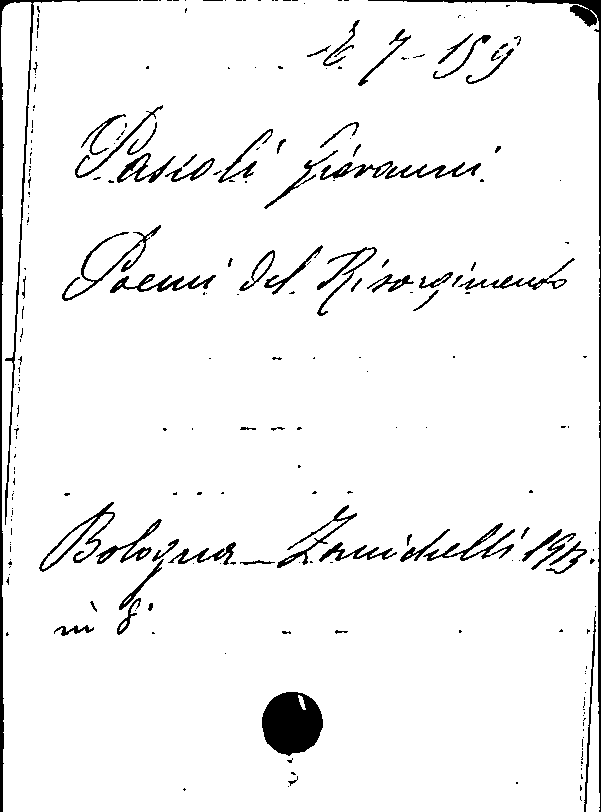 E. 7-159
Pascoli Giovanni
Poemi del Risorgimento
Bologna - Zanichelli 1913.
in 8°